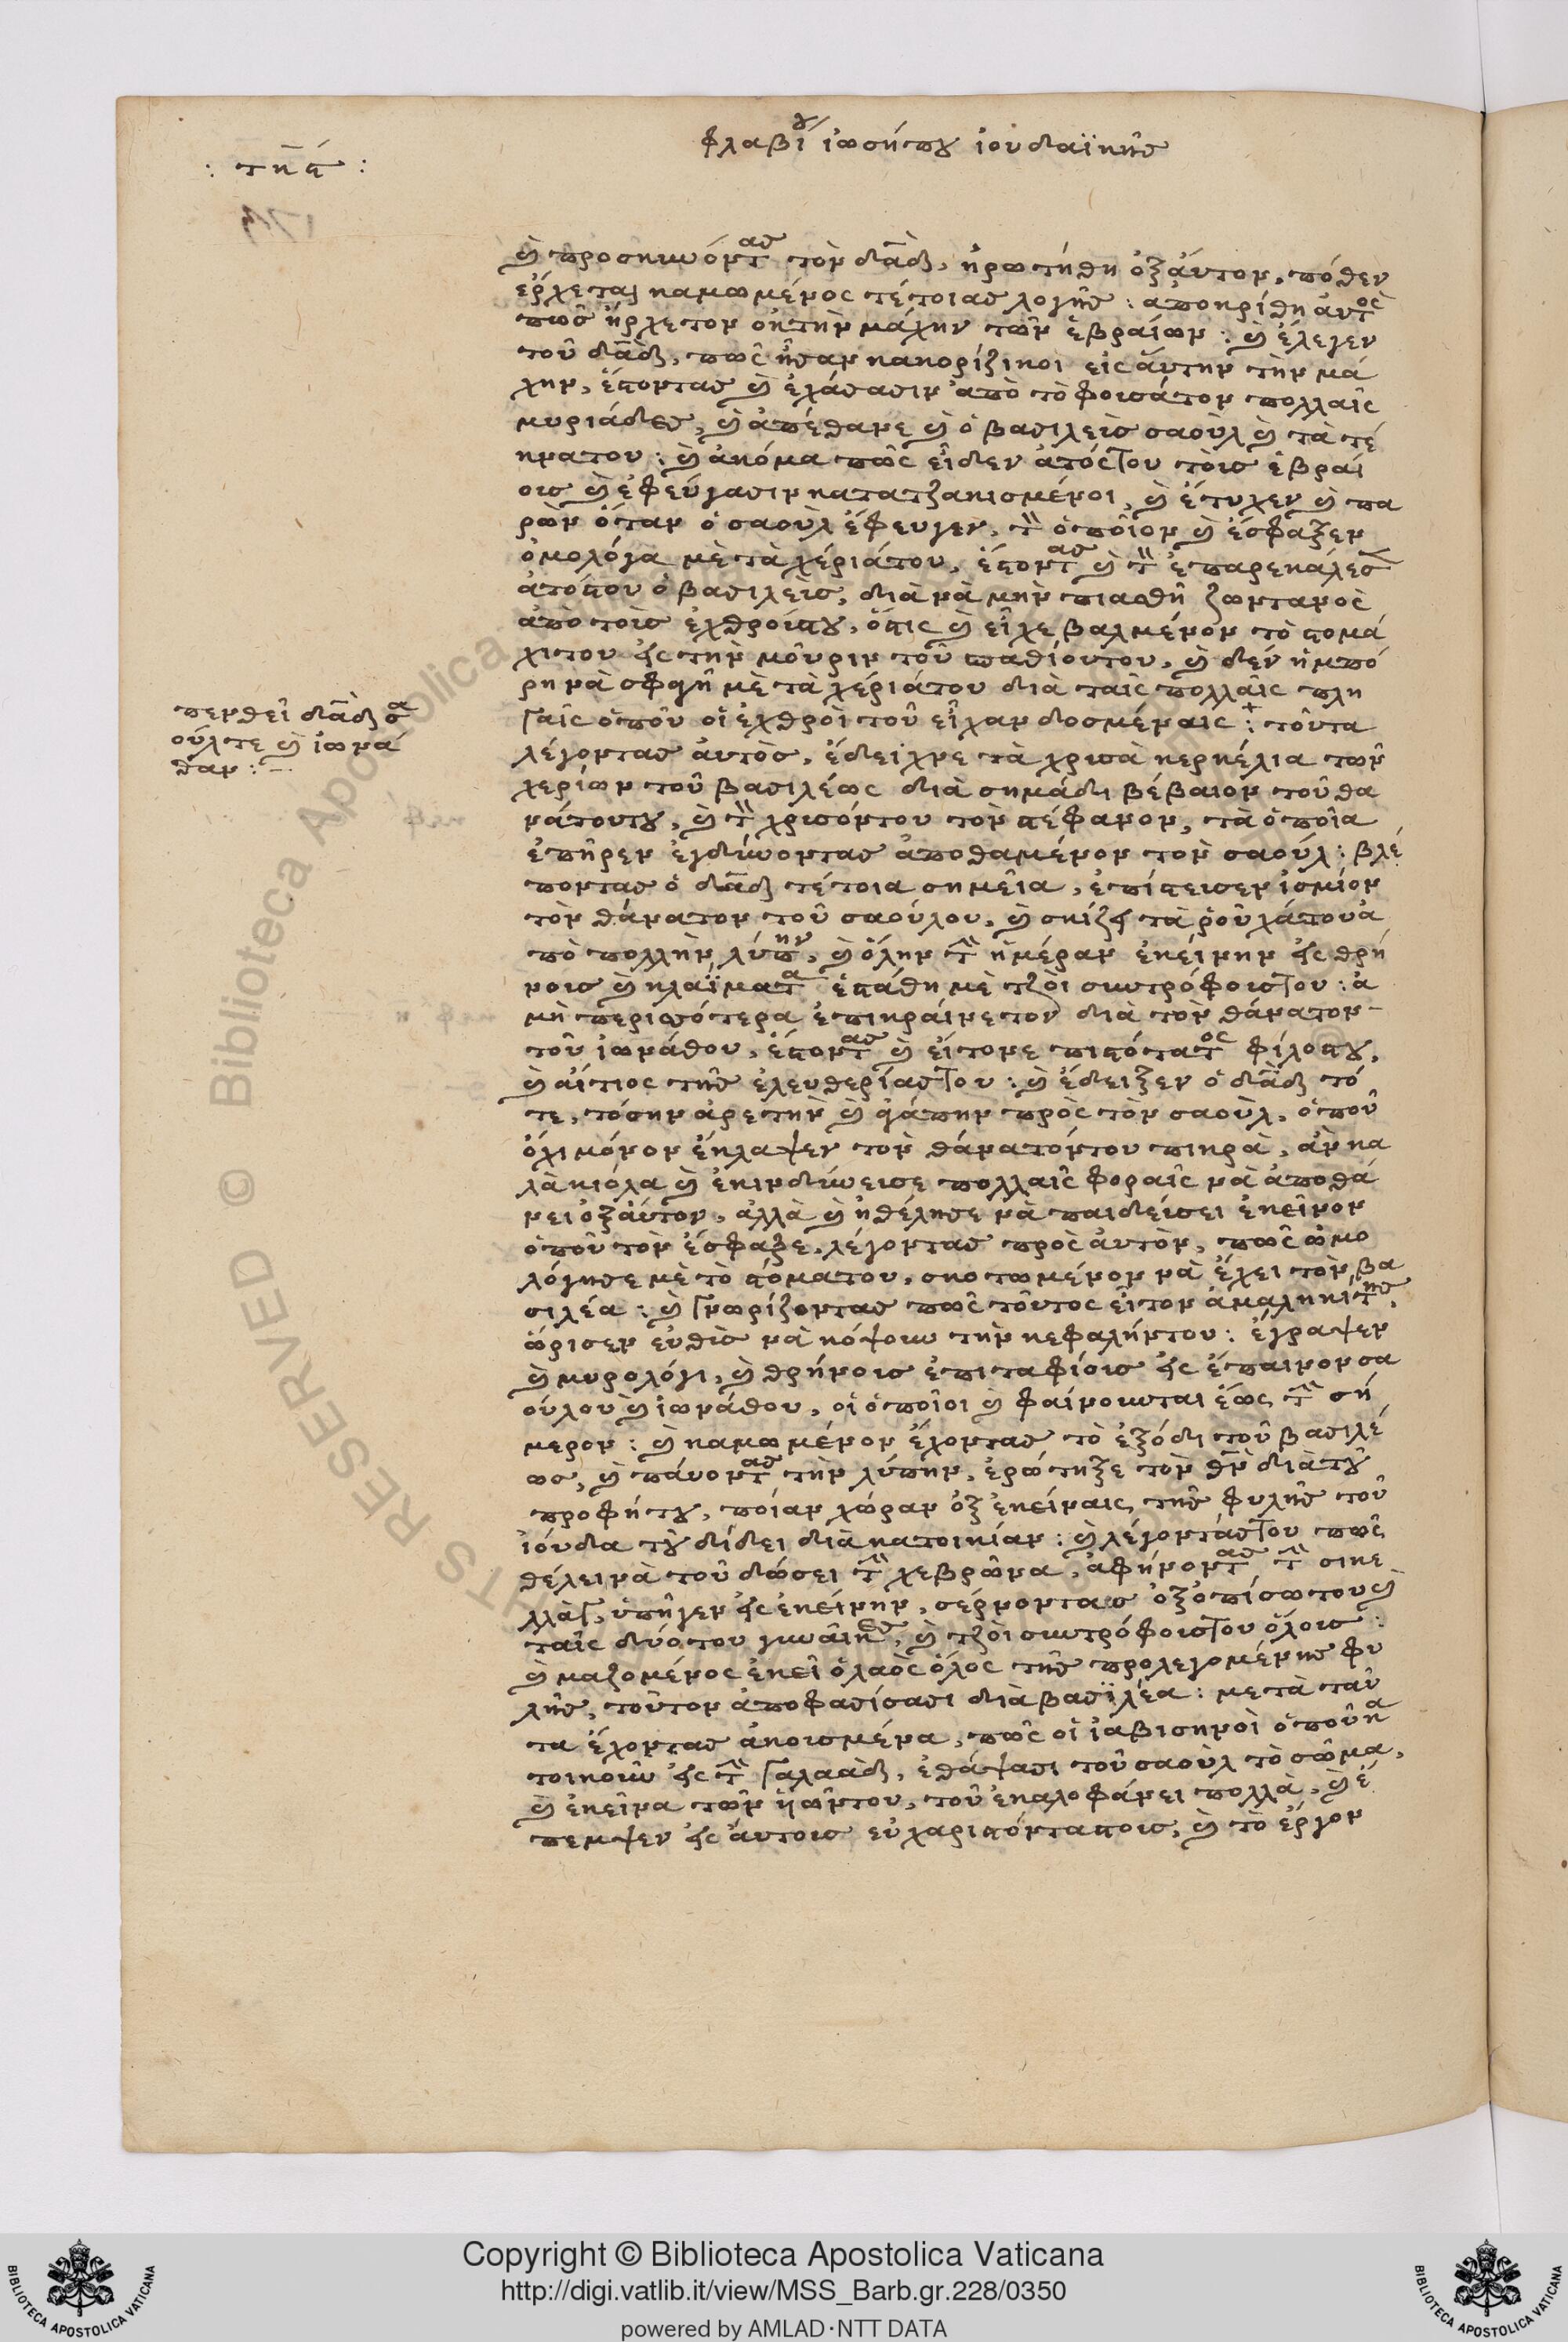 φλαβίου ἰωσήπου ἰουδαϊκῆς
: τῆς :
καὶ προσκυνόντας τὸν δαδ, ἠρωτήθη ὀξ ἄυτον, πόθεν
ἔρχεται καμωμένος τέτοιας λογῆς : ἀποκρίθη ἀυτὸς
πῶς ἤρχετον ὀκ τὴν μάχην τῶν ἑβραίων : καὶ ἔλεγεν
τοῦ δαδ, πῶς ἦσαν κακορίζικοι εἰς ἄυτην τὴν μά
χην, ἔστοντας καὶ ἐχάσασιν ἀπὸ τὸ φοισάτον πολλαῖς
μυριάδες, καὶ ἀπέθανε καὶ ὁ βασιλεὶς σαοὺλ καὶ τὰ τέ
κνατου : καὶ ἀκόμα πῶς εἶδεν ἀτόςτου τοὶς ἑβραί
οις καὶ ἐφεύγασιν κατατζακισμένοι, καὶ ἔτυχεν καὶ πα
ρὼν ὅταν ὁ σαοὺλ ἔφευγεν, τὸν ὁποῖον καὶ ἔσφαξεν
ὁμολόγα μὲ τὰ χέριάτου, ἔστοντας καὶ τὸν ἐπαρεκάλεσεν
ἀτόστου ὁ βασιλεὶς, διὰ νὰ μὴν πιασθῆ ζωντανὸς
ἀπὸ τοὶς ἐχθροίςτου, ὅστις καὶ εἶχε βαλμένον τὸ στομά
χιτου εἰς τὴν μοῦριν τοῦ σπαθίουτου, καὶ δὲν ἠμπό
ρη νὰ σφαγῆ μὲ τὰ χέριάτου διὰ ταῖς πολλαῖς πλη
γαῖς ὁποῦ οἱ ἐχθροὶ τοῦ εἶχαν δοσμέναις : τοῦτα
πενθεῖ δαδ σα
ούλτε καὶ ἰωνά
θαν :
λέγοντας ἀυτὸς, ἔδειχνε τὰ χρισὰ κερκέλια τῶν
χεριῶν τοῦ βασιλέως διὰ σημάδι βέβαιον τοῦ θα
νάτουτου, καὶ τὸν χρισόντου τὸν στέφανον, τὰ ὁποῖα
ἐπῆρεν ἐγδύνοντας ἀποθαμένον τὸν σαούλ : βλέ
ποντας ὁ δαδ τέτοια σημεῖα, ἐπίστεισεν ὀσμίον
τὸν θάνατον τοῦ σαούλου, καὶ σκίζει τὰ ῥοῦχάτου ἀ
πὸ πολλὴν λύπην, καὶ ὅλην τὴν ἡμέραν ἐκείνην εἰς θρή
νοις καὶ κλαΐματα ἐστάθη μὲ τζοὶ συντρόφοιςτου : ἀ
μὴ περισότερα ἐπικραίνετον διὰ τὸν θάνατον
τοῦ ἰωνάθου, ἔστοντας καὶ εἴτονε πιστότατος φίλοςτου,
καὶ αἴτιος τῆς ἐλευθερίαςτου : καὶ ἔδειξεν ὁ δαδ τό
τε, τόσην ἀρετὴν καὶ ἀγάπην πρὸς τὸν σαοὺλ, ὁποῦ
ὄχι μόνον ἔκλαψεν τὸν θάνατόντου πικρὰ, ἂν κα
λὰ κιόλα καὶ ἐκινδύνεισε πολλαῖς φοραῖς νὰ ἀποθά
νει ὀξ ἄυτον, ἀλλὰ καὶ ἠθέλησε νὰ παιδείσει ἐκεῖνον
ὁποῦ τὸν ἔσφαξε, λέγοντας πρὸς ἀυτὸν, πῶς ὡμο
λόγησε μὲ τὸ στόματου, σκοτωμένον νὰ ἔχει τὸν βα
σιλέα : καὶ γνωρίζοντας πῶς τοῦτος εἶτον ἀμαληκίτης,
ὥρισεν εὐθὶς νὰ κόψουν τὴν κεφαλήντου : ἔγραψεν
καὶ μυρολόγι, καὶ θρήνοις ἐπιταφίοις εἰς ἔπαινον σα
ούλου καὶ ἰωνάθου, οἱ ὁποῖοι καὶ φαίνουνται ἕως τὴν σή
μερον : καὶ καμωμένον ἔχοντας τὸ ἐξόδι τοῦ βασιλέ
ως, καὶ πάυοντας τὴν λύπην, ἐρώτηξε τὸν θν διὰ τοῦ
προφήτου, ποίαν χώραν ὀξ ἐκείναις τῆς φυλῆς τοῦ
ἰούδα τοῦ δίδει διὰ κατοικίαν : καὶ λέγοντάςτου πῶς
θέλει νὰ τοῦ δώσει τὴν χεβρῶνα, ἀφήνοντας τὴν σικε
λλὰγ, ὑπῆγεν εἰς ἐκείνην, σέρνοντας ὀξοπίσωτου καὶ
ταῖς δύοτου γυναῖκες, καὶ τζοὶ συντρόφοιςτου ὅλοις :
καὶ μαζομένος ἐκεῖ ὁ λαὸς ὅλος τῆς προλεγομένης φυ
λῆς, τοῦτον ἀποφασίσασι διὰ βασϊλέα : μετὰ ταῦ
τα ἔχοντας ἀκοισμένα, πῶς οἱ ἰαβισηνοὶ ὁποῦ κα
τοικοῦν εἰς τὴν γαλαὰδ, ἐθάψασι τοῦ σαοὺλ τὸ σῶμα,
καὶ ἐκεῖνα τῶν ὑιῶντου, τοῦ ἐκαλοφάνει πολλὰ, καὶ ἔ
πεμψεν εἰς ἄυτοις εὐχαριστόντατοις, καὶ τὸ ἔργον
Copyright © Biblioteca Apostolica Vaticana
http://digi.vatlib.it/view/MSS_Barb.gr.228/0350
powered by AMLAD·NTT DATA